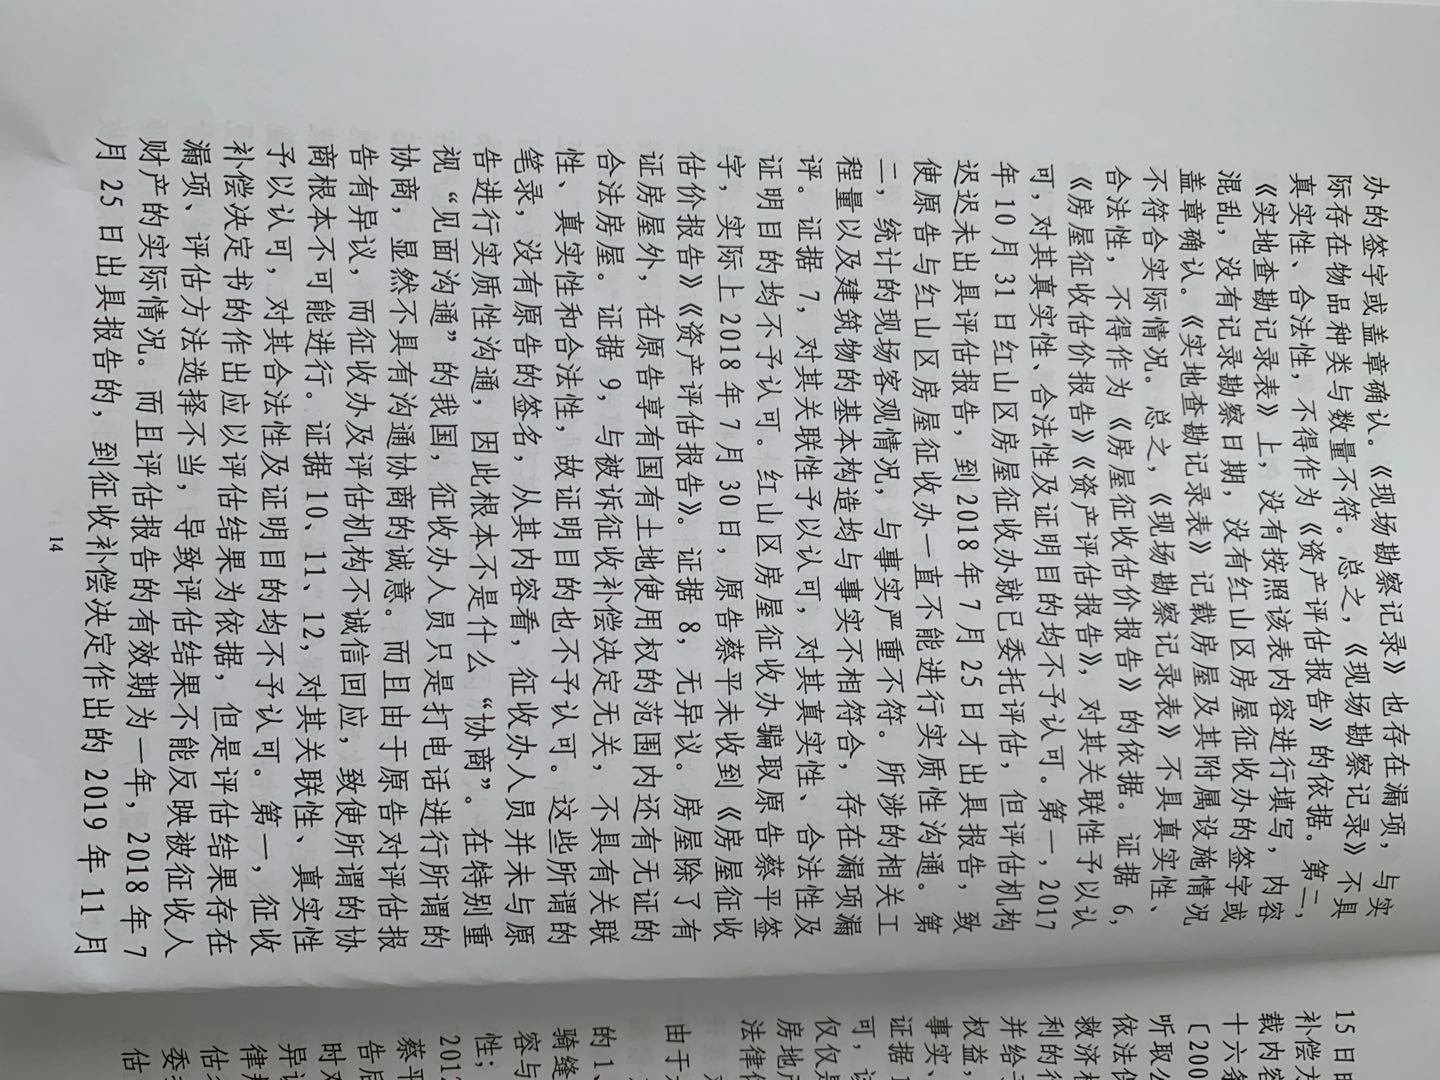 办的签字或盖章确认。《现场勘察记录》也存在漏项，与实
际存在物品种类与数量不符。总之，《现场勘察记录》不具
真实性、合法性，不得作为《资产评估报告》的依据。第二，
《实地查勘记录表》上，没有按照该表内容进行填写，内容
混乱，没有记录勘察日期，没有红山区房屋征收办的签字或
盖章确认。《实地查勘记录表》记载房屋及其附属设施情况
不符合实际情况。总之，《现场勘察记录表》不具真实性、
合法性，不得作为《房屋征收估价报告》的依据。证据 6，
《房屋征收估价报告》《资产评估报告》，对其关联性予以认
可，对其真实性、合法性及证明目的均不予认可。第一，2017
年 10 月 31 日红山区房屋征收办就已委托评估，但评估机构
迟迟未出具评估报告，到 2018 年 7 月 25 日才出具报告，致
使原告与红山区房屋征收办一直不能进行实质性沟通。第
二，统计的现场客观情况，与事实严重不符。所涉的相关工
程量以及建筑物的基本构造均与事实不相符合，存在漏项漏
评。证据 7，对其关联性予以认可，对其真实性、合法性及
证明目的均不予认可。红山区房屋征收办骗取原告蔡平签
字，实际上 2018 年 7 月 30 日，原告蔡平未收到《房屋征收
估价报告》《资产评估报告》。证据 8，无异议。房屋除了有
证房屋外，在原告享有国有土地使用权的范围内还有无证的
合法房屋。证据 9，与被诉征收补偿决定无关，不具有关联
性、真实性和合法性，故证明目的也不予认可。这些所谓的
笔录，没有原告的签名，从其内容看，征收办人员并未与原
告进行实质性沟通，因此根本不是什么“协商”。在特别重
视“见面沟通”的我国，征收办人员只是打电话进行所谓的
协商，显然不具有沟通协商的诚意。而且由于原告对评估报
告有异议，而征收办及评估机构不诚信回应，致使所谓的协
商根本不可能进行。证据 10、11、12，对其关联性、真实性
予以认可，对其合法性及证明目的均不予认可。第一，征收
补偿决定书的作出应以评估结果为依据，但是评估结果存在
漏项、评估方法选择不当，导致评估结果不能反映被征收人
财产的实际情况。而且评估报告的有效期为一年，2018 年 7
月 25 日出具报告的，到征收补偿决定作出的 2019 年 11 月
14
15 日时
补偿方
载内容
十六条
〔200
听取公
依法保
救济权
利的行
并给予
权益，
事实、
证据 1
可，该
仅仅是
房地产
法律依
对
由于原
的 1、
骑缝
容与
性；
2012
蔡平
告后
时对
异议
律规
估报
委
估